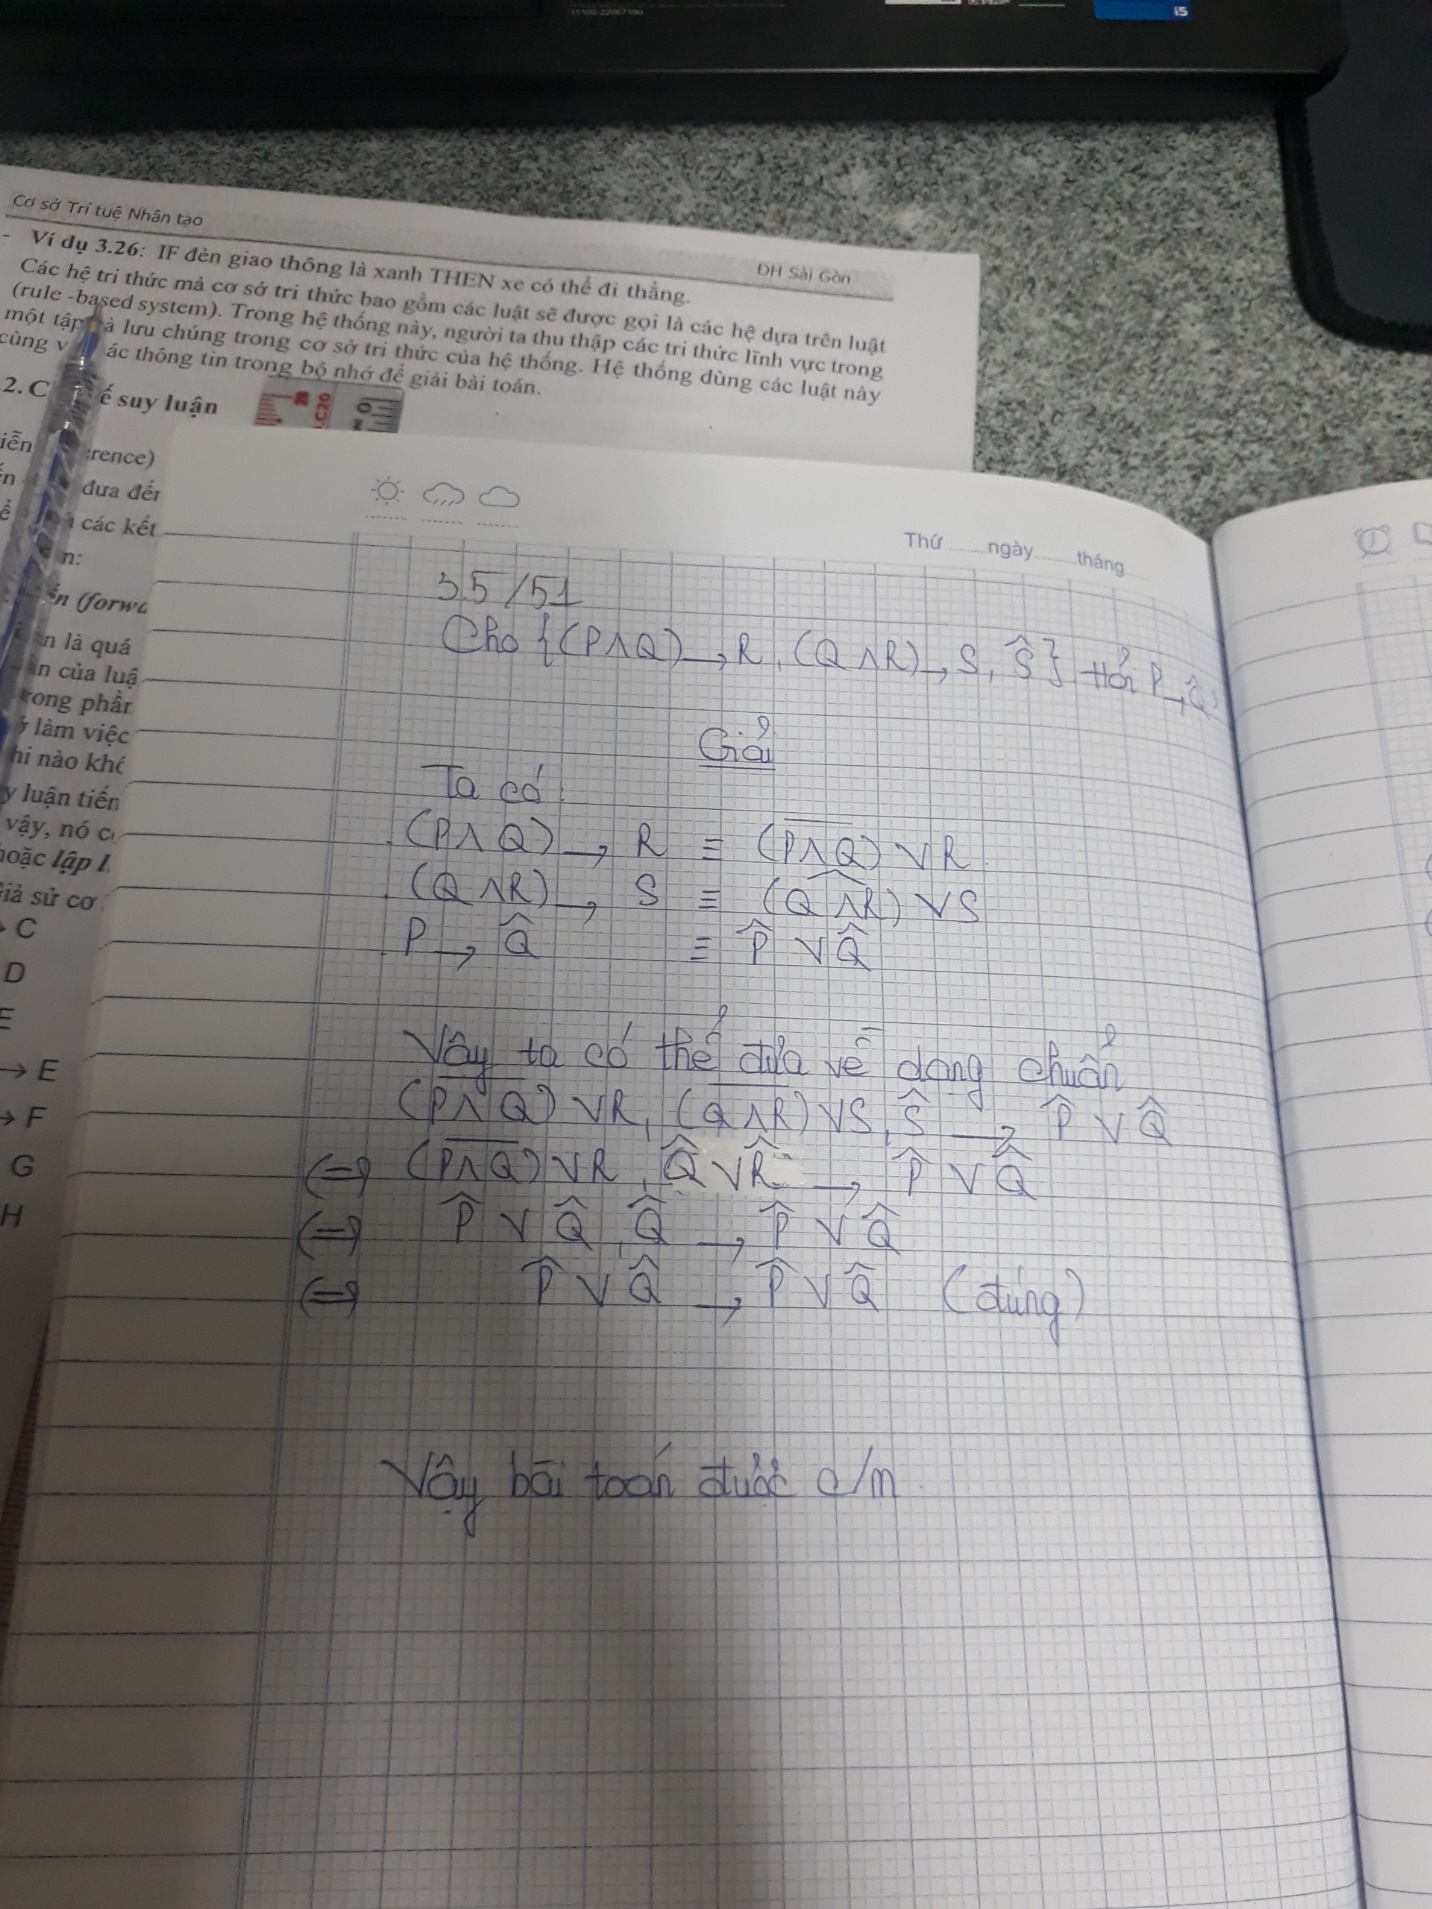 i5
Cơ sở Trí tuệ Nhân tạo
ĐH Sài Gòn
- Ví dụ 3.26: IF đèn giao thông là xanh THEN xe có thể đi thẳng.
Các hệ tri thức mà cơ sở tri thức bao gồm các luật sẽ được gọi là các hệ dựa trên luật
(rule -based system). Trong hệ thống này, người ta thu thập các tri thức lĩnh vực trong
một tập à lưu chúng trong cơ sở tri thức của hệ thống. Hệ thống dùng các luật này
cùng v ác thông tin trong bộ nhớ để giải bài toán.
2. C ế suy luận
iễn rence)
đưa đến
các kết
n:
ến (forwa
n là quá
ần của luậ
rong phần
ở làm việc
hi nào khô
y luận tiến
vậy, nó c
hoặc lập l
Giả sử cơ
C
D
E
→ E
→ F
G
H
Thứ ngày tháng
3.5/51
Cho {(P∧Q) → R, (Q∧R) → S, Ŝ} Hỏi P → Q̂
Giải
Ta có:
(P∧Q) → R ≡ (P̅∧̅Q̅) ∨R
(Q∧R) → S ≡ (Q̅∧̅R̅) ∨S
P → Q̂ ≡ P̂ ∨ Q̂
Vậy ta có thể đưa về dạng chuẩn
(P̅∧̅Q̅) ∨R, (Q̅∧̅R̅) ∨S, Ŝ → P̂ ∨ Q̂
(=) (P̅∧̅Q̅) ∨R, Q̂ ∨ R̂ → P̂ ∨ Q̂
(=) P̂ ∨ Q̂, Q̂ → P̂ ∨ Q̂
(=) P̂ ∨ Q̂ → P̂ ∨ Q̂ (đúng)
Vậy bài toán được c/m